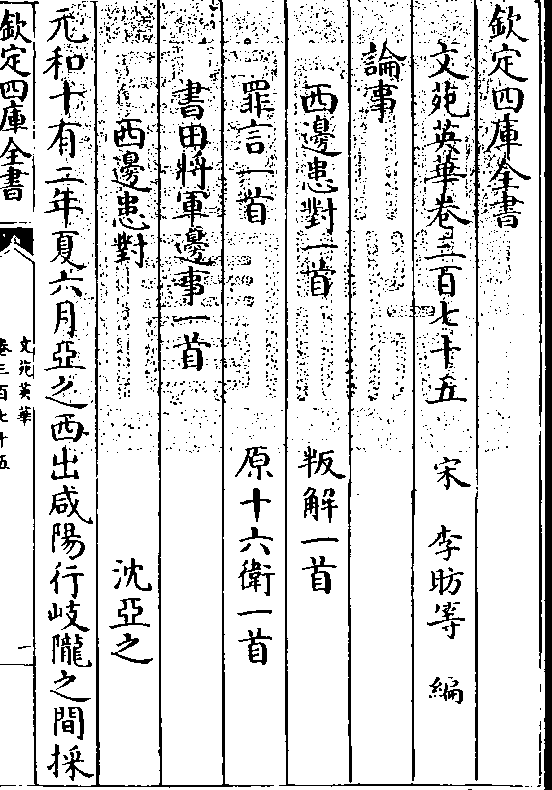 欽定四庫全書
文苑英華卷三百七十五　宋　李昉等　編
論事
西邊患對一首　叛解一首
罪言一首　原十六衛一首
書田將軍邊事一首
西邊患對　沈亞之
元和十有二年夏六月亞之西出咸陽行岐隴之間採
欽定四庫全書
文苑英華
卷三百七十五
一